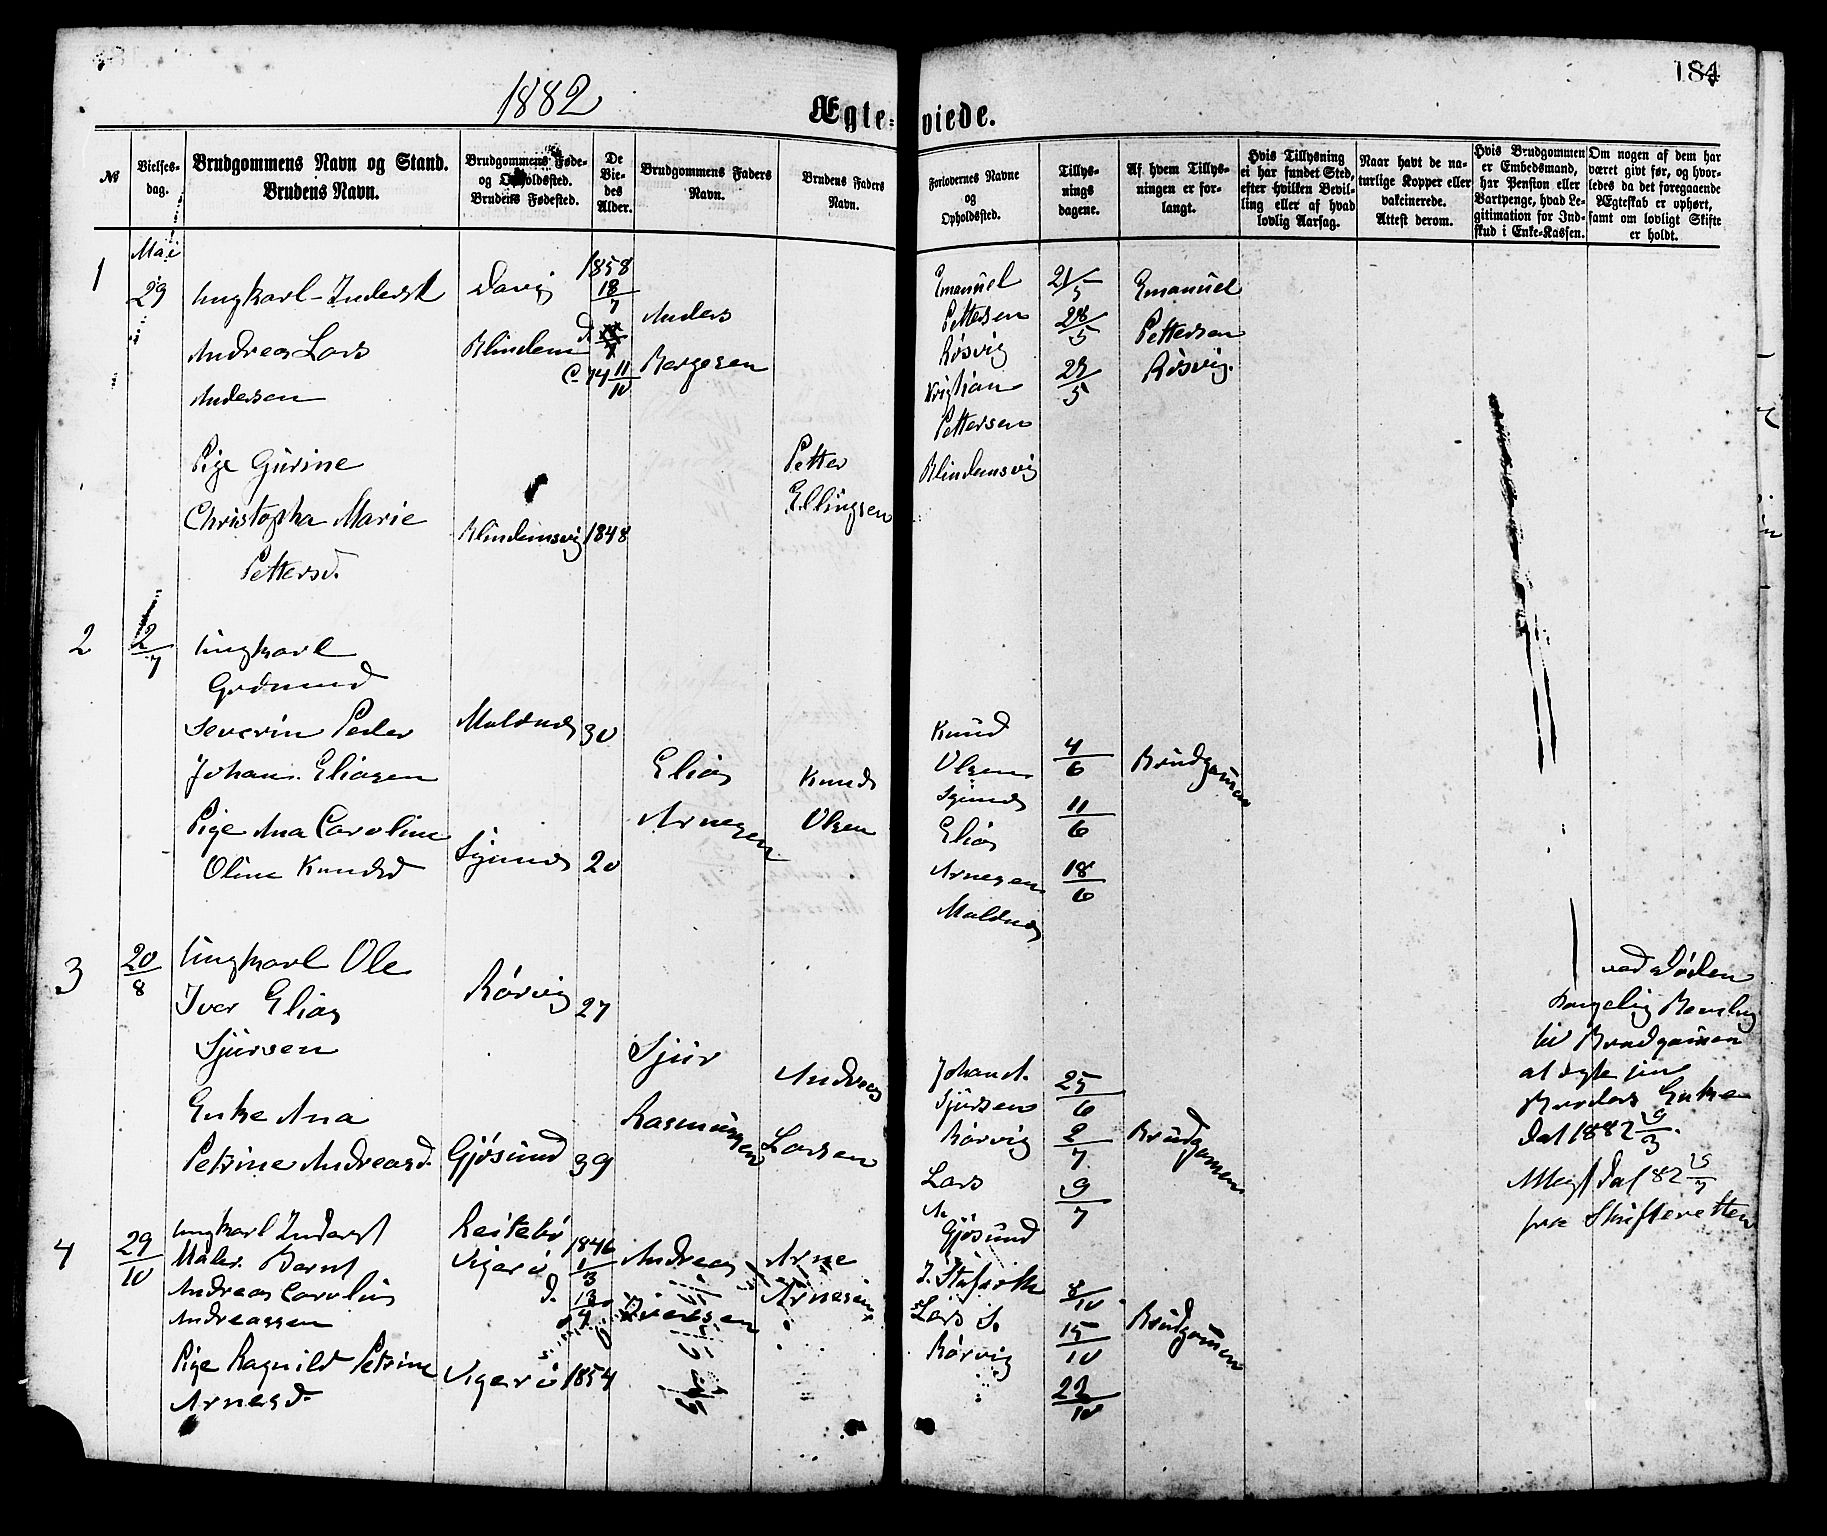 184
1882
Ægte-viede.
№
Vielses-dag.
Brudgommens Navn og Stand.
Brudens Navn.
Brudgommens Føde-
og Opholdssted.
Brudens Fødested.
De
Vie-
des
Alder.
Brudgommens Faders
Navn.
Brudens Faders
Navn.
Forlovernes Navne
og
Opholdssted.
Tillys-
nings
dagene.
Af hvem Tillys-
ningen er for-
langt.
Hvis Tillysning
ei har fundet Sted,
efter hvilken Bevil-
ling eller af hvad
lovlig Aarsag.
Naar havt de na-
turlige Kopper eller
vakcinerede.
Attest derom.
Hvis Brudgommen
er Embedsmand,
har Pension eller
Vartpenge, hvad Le-
gitimation for Ind-
skud i Enke-Kassen.
Om nogen af dem har
været givt før, og hvor-
ledes da det foregaaende
Ægteskab er ophørt,
samt om lovligt Skifte
er holdt.
1
Mai
29
Ungkarl - Inderst
Andreas Lars
Andersen
Blindem
1858
18/7
Anders
Børgesen
Pige Gurine
Christopha Marie
Pettersd.
Blindemsvig
1848
Petter
Ellingsen
Emanuel
Pettersen
Røsvig
Kristian
Pettersen
Blindemsvig
21/5
28/5
29/5
Emanuel
Pettersen
Røsvig.
2
2/7
Ungkarl
Gudmund
Severin Peder
Johan Eliasen
Maldnæs
30
Elias
Arnesen
Pige Ana Caroline
Oline Knudsd
20
Knud
Olsen
Knud
Olsen
Elias
Arnesen
Maldnæs
4/6
11/6
18/6
Brudgommen
3
20/8
Ungkarl Ole
Iver Elias
Sjursen
Rørvig
27
Sjur
Rasmussen
Enke Ana
Petrine Andreasd.
Gjøsund
39
Andreas
Larsen
Johan A.
Sjursen
Rørvig
Lars
A.
Gjøsund
25/6
2/7
9/7
Brudgommen
ved Døden
Kongelig Bevling
til Brudgommen
at ægte sin
Broders Enke
dat 1882 9/3.
Attest dat 82
fra Skifteretten
4
29/10
Ungkarl Inderst
Maler Bernt
Andreas Carolius
Andreassen
Vigerø
1846
1/3
Andreas
Iversen
Pige Ragnild Petrine
Arnesd.
Vigerø
1854
Arne
Arnesen
Lars S.
Rørvig
8/10
15/10
22/10
Brudgommen